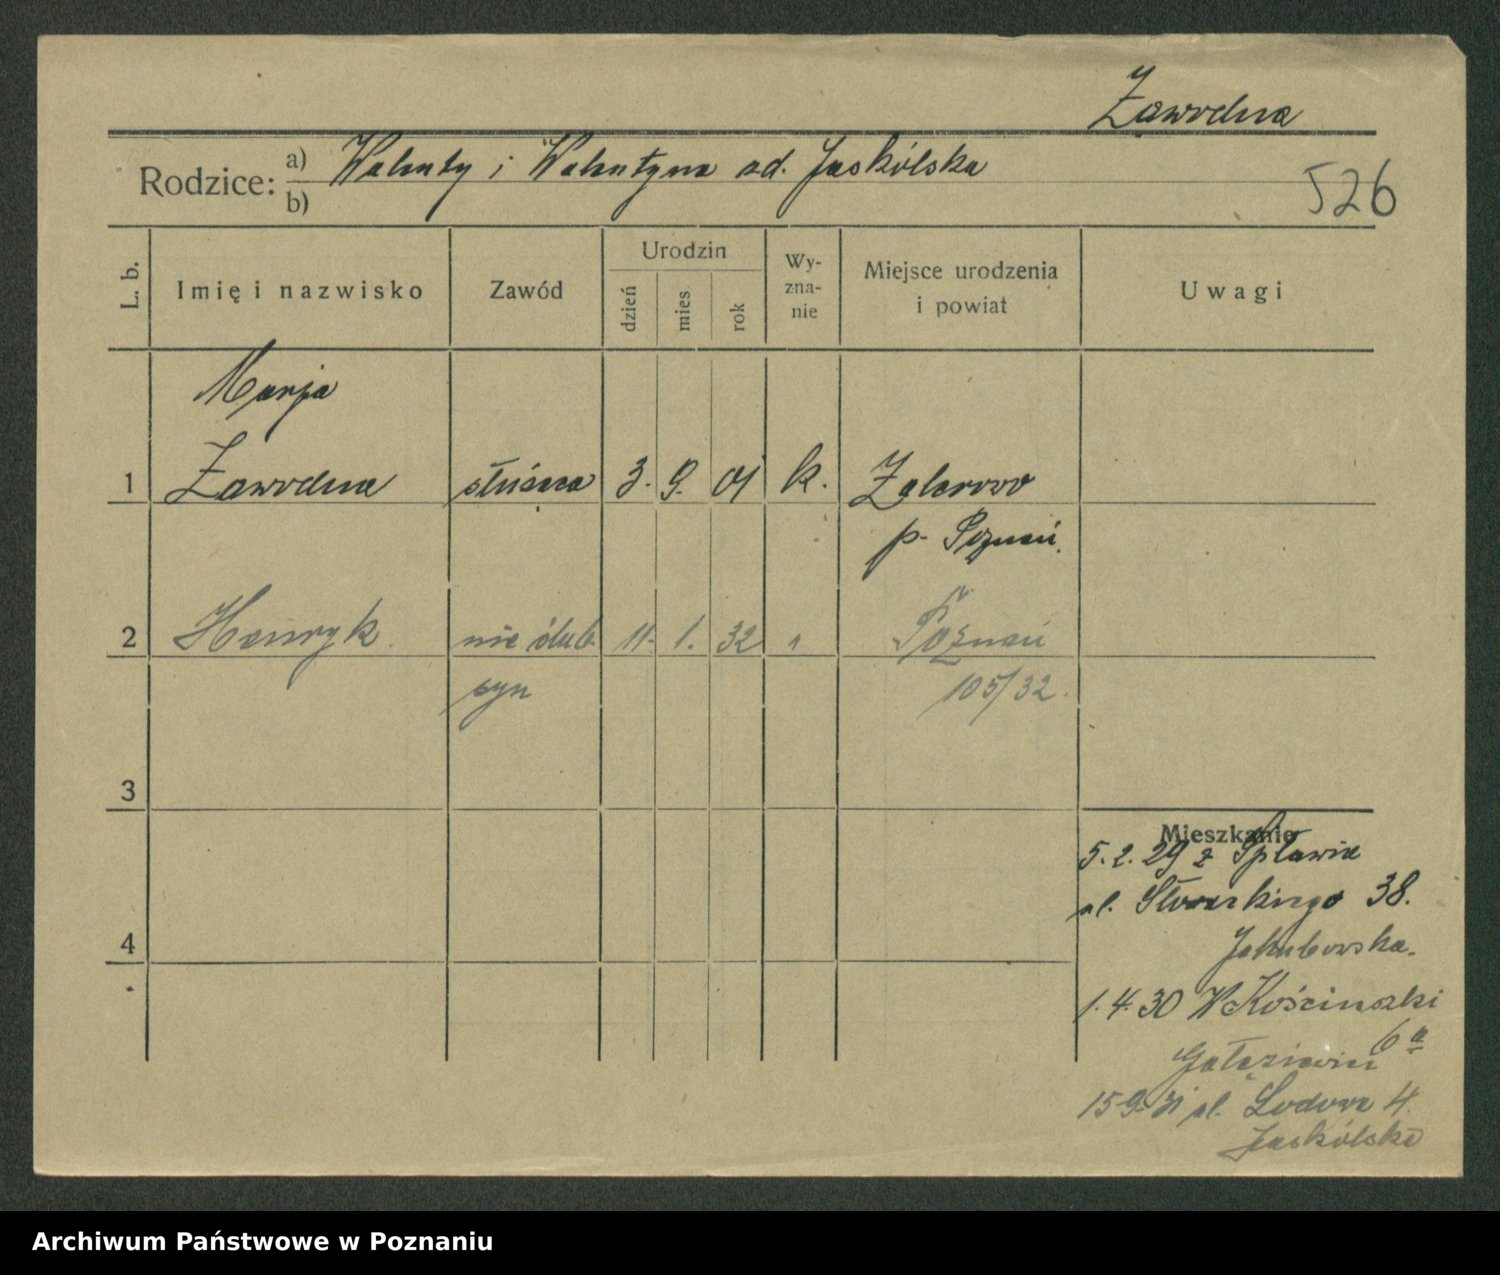 Zawodna
Rodzice: a) Walenty i Walentyna od. Jaskólska
b)
526
L. b. Imię i nazwisko Zawód Urodzin dzień mies. rok Wy-zna-nie Miejsce urodzenia i powiat Uwagi
Marja
1 Zawodna służąca 3. 9. 01 k. Zalasewo
p. Poznań.
2 Henryk nie ślub 11. 1. 32 " Poznań
syn 105/32.
3
Mieszkanie
5.2.29 z Spławia
ul. Słowackiego 38.
4
Jakubowska.
1.4.30 W Kościuszki
6a
Gałęziewicz
15-9-31 ul. Lodowa 4.
Jaskólska
Archiwum Państwowe w Poznaniu